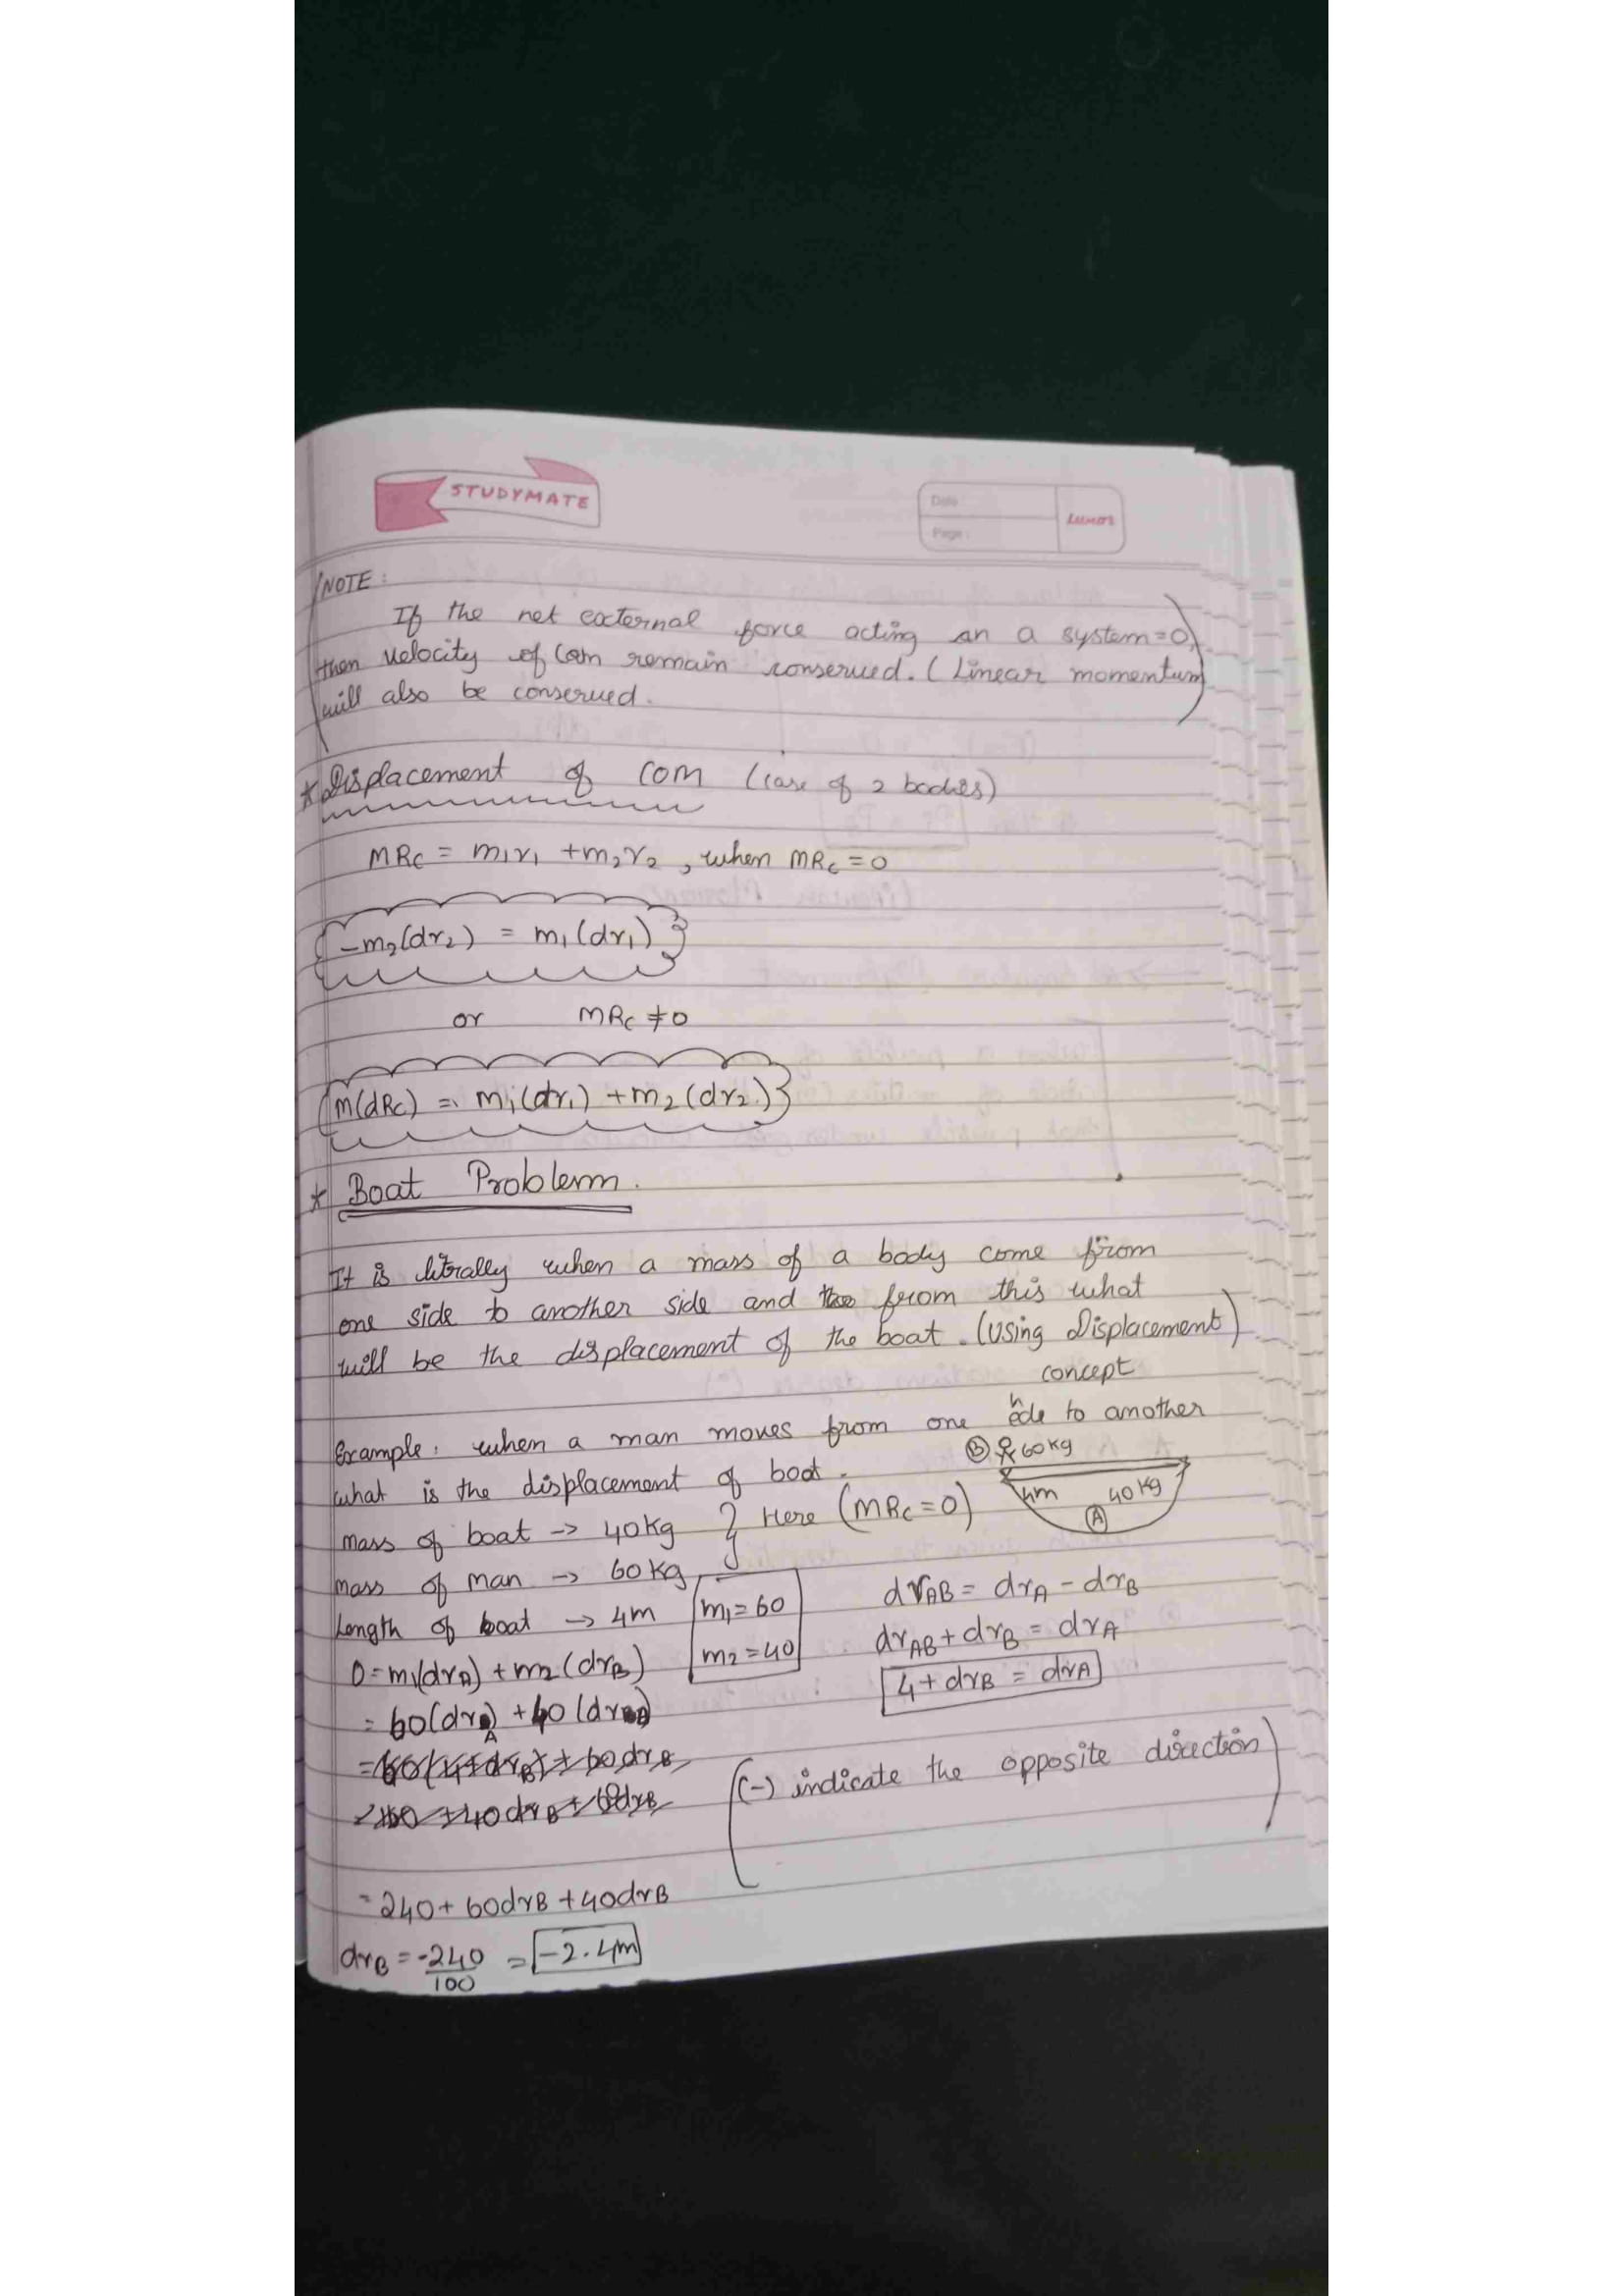 STUDYMATE
Date
Page:
LUMOS
NOTE:
If the net external force acting on a system=0,
then velocity of Com remain conserved. (Linear momentum
will also be conserved.
*Displacement of COM (case of 2 bodies)
MRc = m1r1 +m2r2 , when MRc=0
-m2(dr2) = m1(dr1)
or MRc ≠0
M(dRc) = m1(dr1) +m2(dr2)
* Boat Problem.
It is litrally when a mass of a body come from
one side to another side and from this what
will be the displacement of the boat. (Using Displacement)
concept
Example: when a man moves from one to another
what is the displacement of boat.
Ⓑ 60kg
4m 40kg
Ⓐ
mass of boat -> 40kg } Here (MRc=0)
mass of man -> 60kg
Length of boat -> 4m
m1=60
m2=40
drAB = drA - drB
drAB + drB = drA
4+ drB = drA
0=m1(drA) +m2(drB)
= 60(drA) +40(dr
(-) indicate the opposite direction
=240+ 60drB +40drB
drB = -240/100 = -2.4m